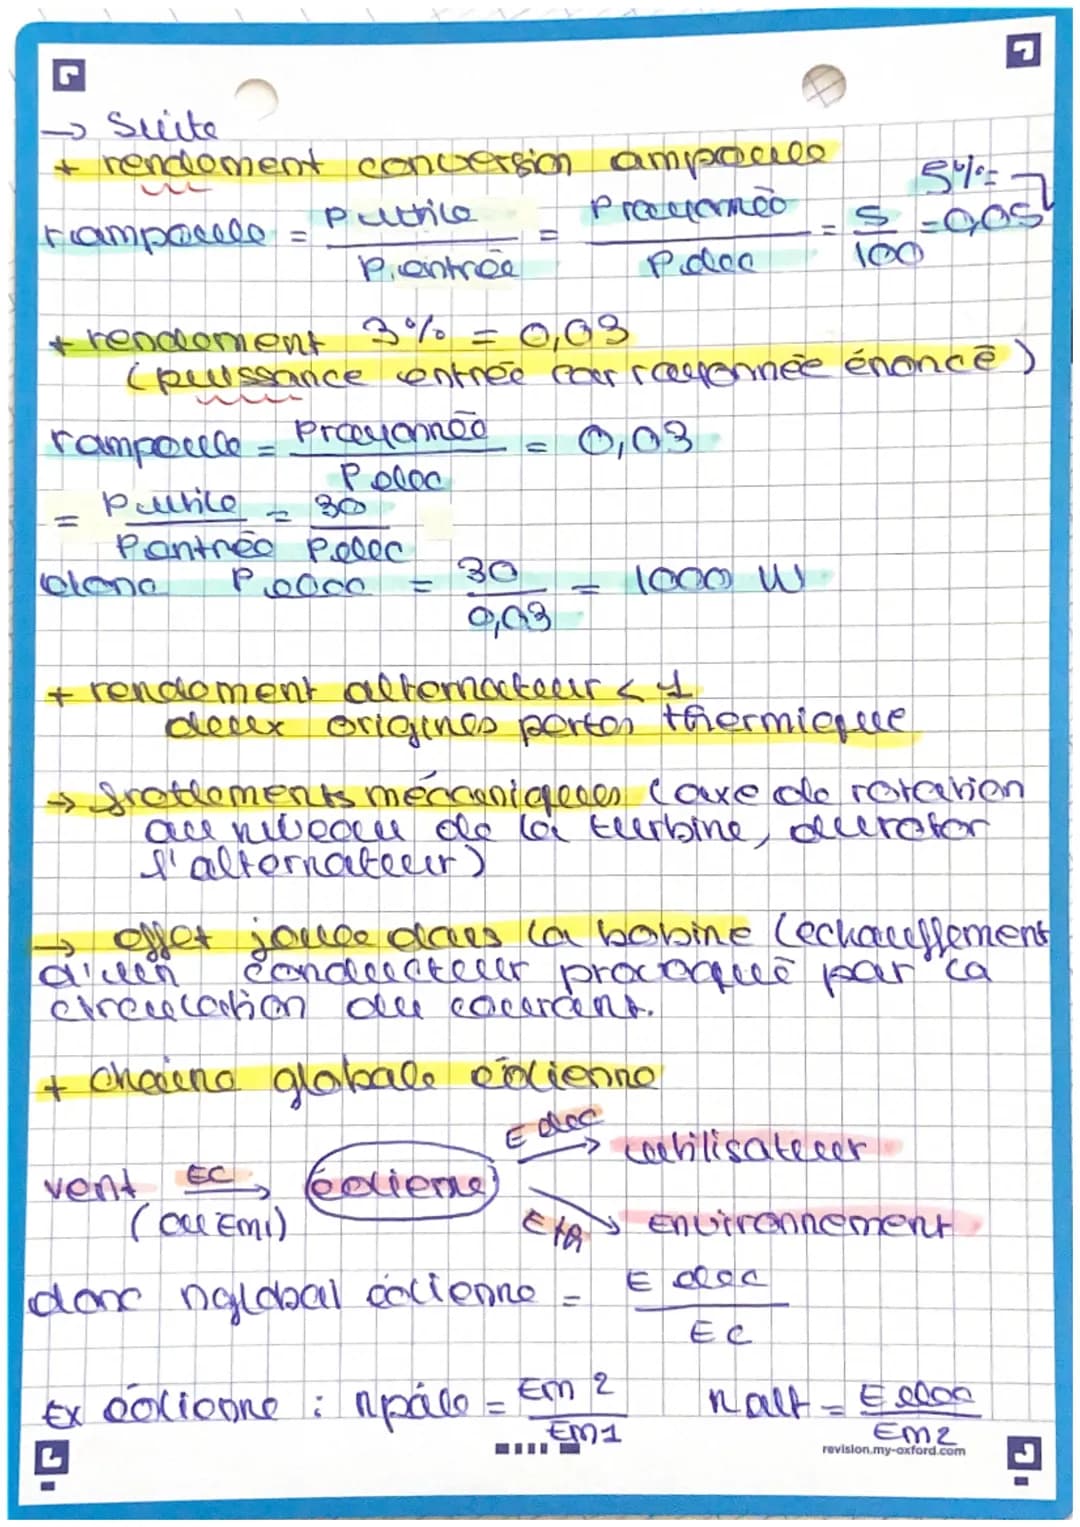 → Suite
+ rendement conversion ampoule
rampoule = P.utile / P.entrée = P rayonnée / P.elec = 5/100 = 0,05
5% =
+ rendement 3% = 0,03
(puissance entrée car rayonnée énoncé)
rampoule = Prayonnée / P elec = 0,03
= P.utile / P entrée = 30 / P.elec
donc P.elec = 30 / 0,03 = 1000 W
+ rendement alternateur < 1
deux origines pertes thermique
→ frottements mécaniques (axe de rotation
au niveau de la turbine, du rotor
l'alternateur)
→ effet joule dans la bobine (echauffement
d'un conducteur provoqué par la
circulation du courant.
+ chaine globale éolienne
vent EC → éolienne E elec → utilisateur
(ou Em1) Eth → Environnement
donc nglobal éolienne = E elec / EC
Ex éolienne : npâle = Em 2 / Em1 n alt = E elec / Em2
revision.my-oxford.com